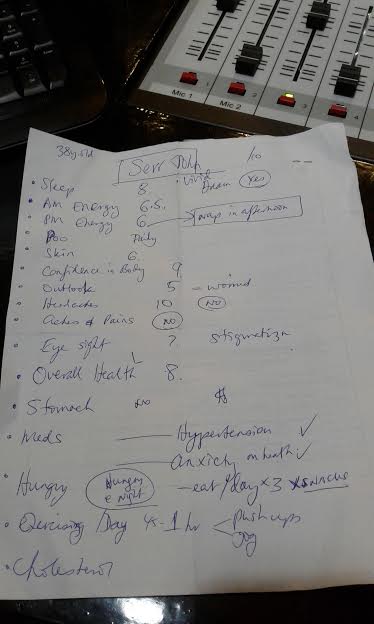 Mic 1
Mic 2
2
3
4
38yr old
Serr John
/10
Sleep 8. Vivid Dream Yes
AM Energy 6.5.
PM Energy 6. nap in afternoon
Poo Daily
Skin 6.
Confidence in Body 9
Outlook 5 - worried
Headaches 10 NO
Aches & Pains NO
Eye sight ? stigmatizm
Overall Health 8.
Stomach NO
Meds Hypertension ✓
Anxiety on health ✓
Hungry Hungry @ night - eat/day x 3 x snacks
Exercising/Day 4x-1 hr push ups
jog
Cholesterol